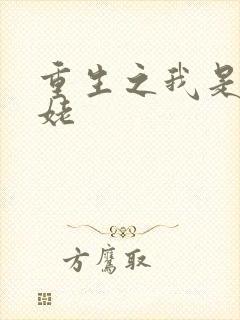 重生之我是
姥
方鹰取